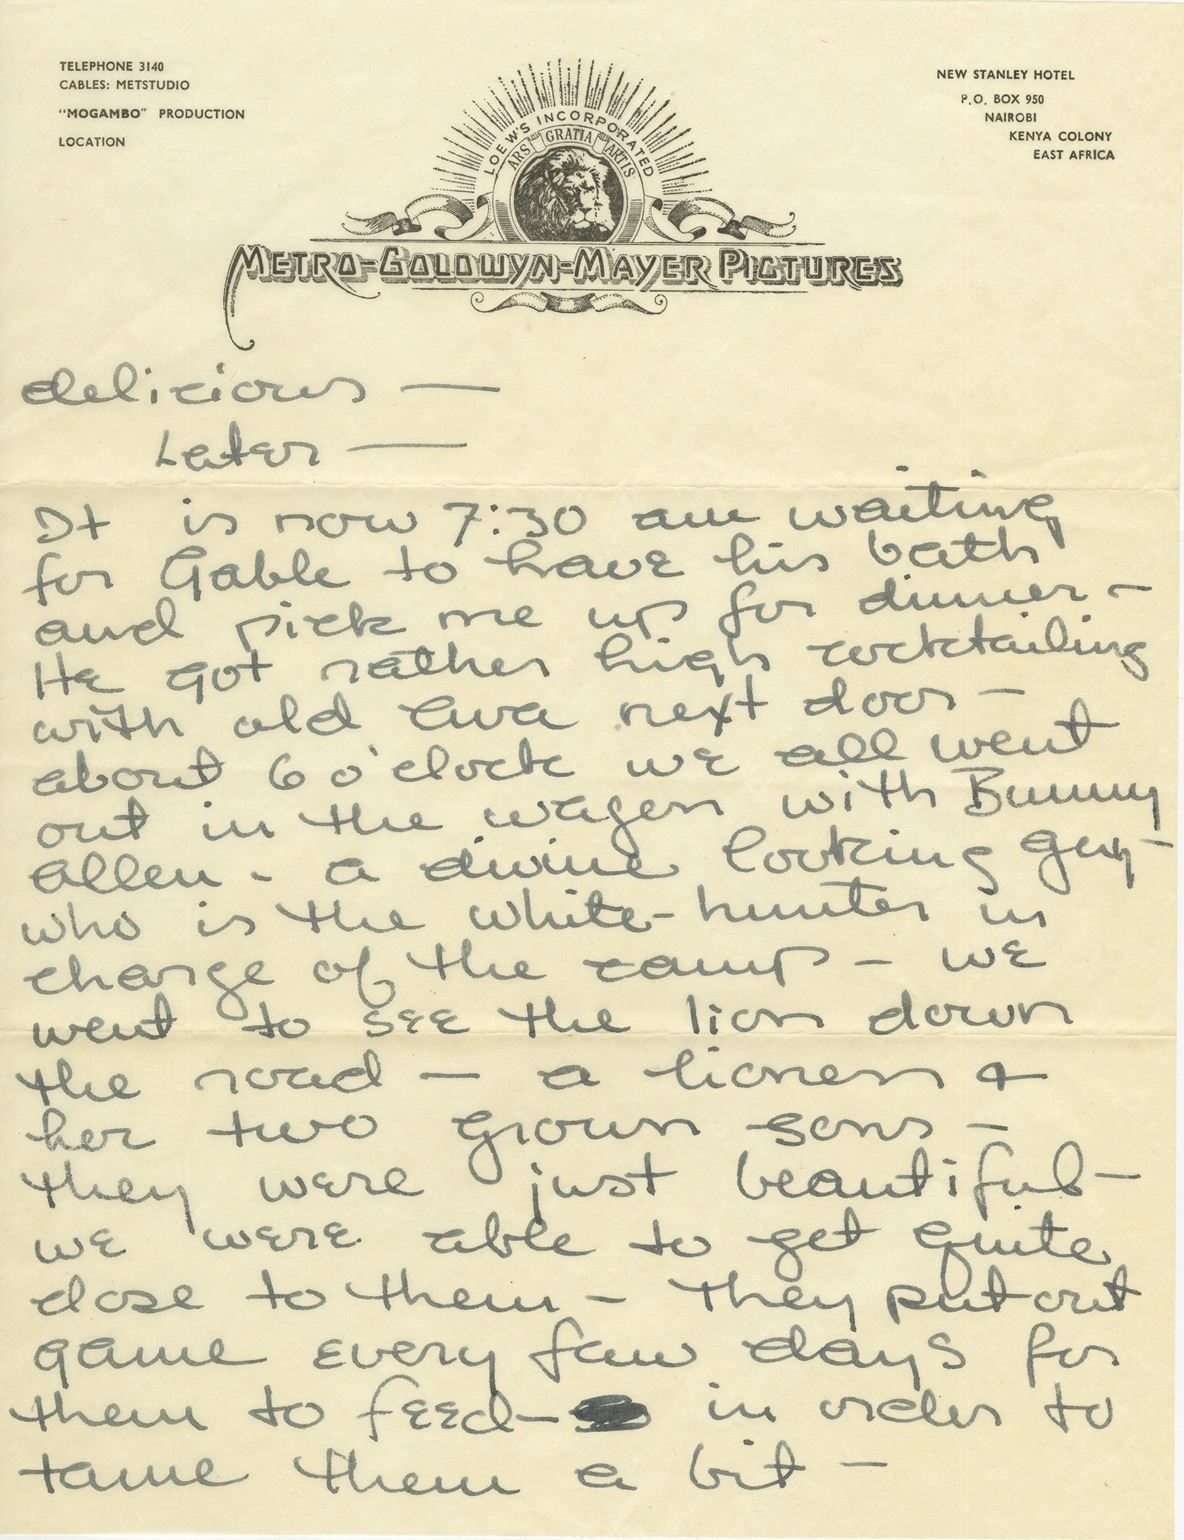 TELEPHONE 3140
CABLES: METSTUDIO
"MOGAMBO" PRODUCTION
LOCATION
NEW STANLEY HOTEL
P.O. BOX 950
NAIROBI
KENYA COLONY
EAST AFRICA
LOEW'S INCORPORATED
ARS GRATIA ARTIS
METRO-GOLDWYN-MAYER PICTURES
delicious —
Later —
It is now 7:30 am waiting
for Gable to have his bath
and pick me up for dinner -
He got rather high cocktailing
with old Ava next door -
about 6 o'clock we all went
out in the wagon with Bunny
Allen - a divine looking guy -
who is the white-hunter in
charge of the camp - we
went to see the lion down
the road — a lioness &
her two grown sons -
they were just beautiful -
we were able to get quite
close to them - They put out
game every few days for
them to feed - in order to
tame them a bit -